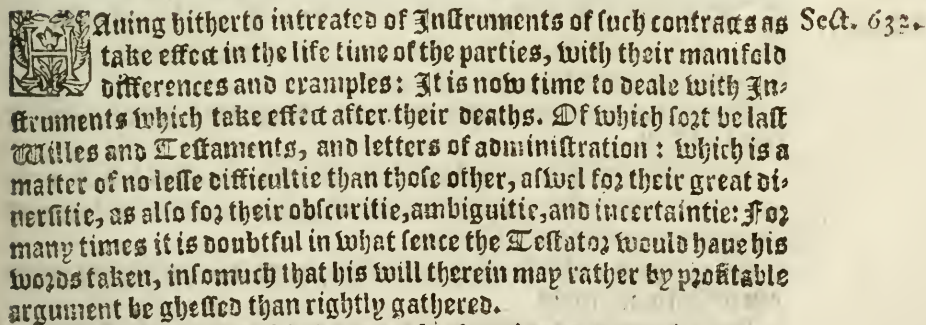 HAuing hitherto intreated of Instruments of such contracts as Sect. 632.
take effect in the life time of the parties, with their manifold
differences and examples: It is now time to deale with In-
struments which take effect after their deaths. Of which sort be last
Willes and Testaments, and letters of administration: which is a
matter of no lesse difficultie than those other, aswel for their great di-
uersitie, as also for their obscuritie, ambiguitie, and incertaintie: For
many times it is doubtful in what sence the Testator would haue his
words taken, insomuch that his will therein may rather by profitable
argument be ghessed than rightly gathered.